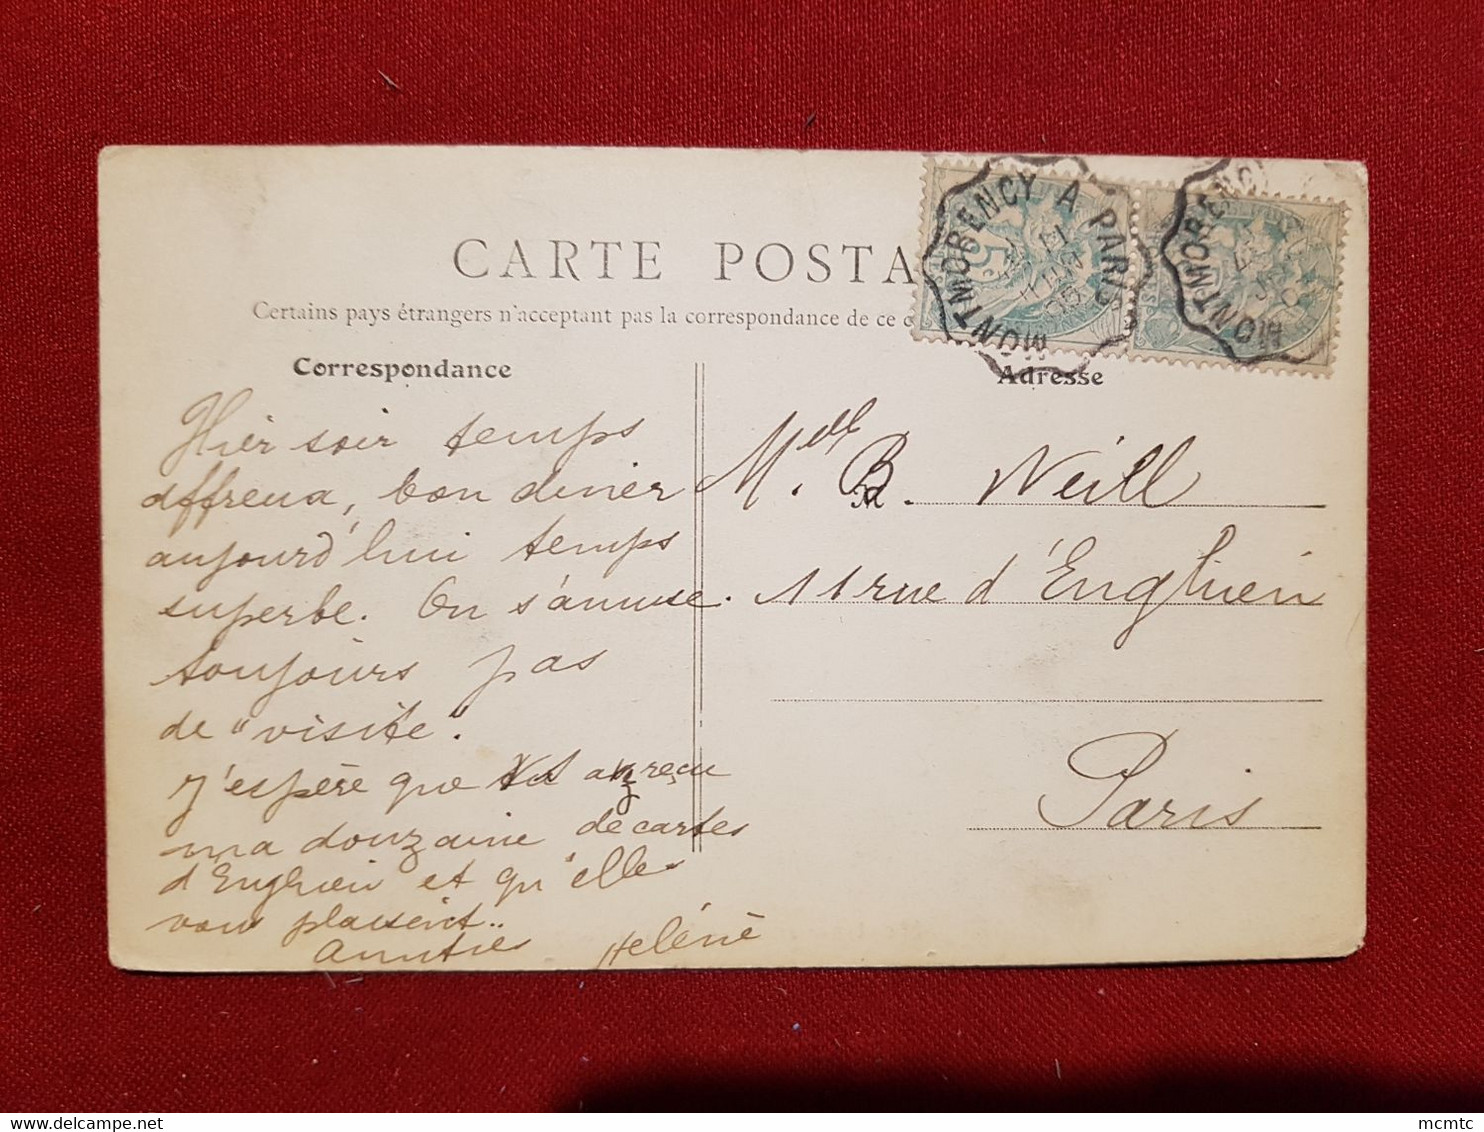 CARTE POSTA
Certains pays étrangers n'acceptent pas la correspondance de ce c
Correspondance
Adresse
MONTMORENCY A PARIS
11
JUIN
MONTMORENC
Hier soir temps
affreux, bon diner
aujourd'hui temps
superbe. On s'amuse.
toujours pas
de "visite".
J'espère que reçu
ma douzaine de cartes
d'Enghien et qu'elles
vous plaisent..
Amitiés Hélène
Mdlle. B. Weill
11 rue d'Enghien
Paris
delcampe.net
mcmtc